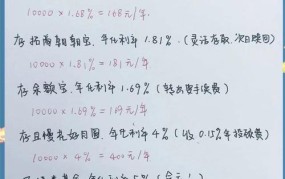 10000 × 1.68% = 168元/年.
存招商朝朝宝,年化利率 1.81%.(灵活存取、次日赎回)
10000 × 1.81% = 181元/年
存余额宝,年化利率1.69%(转出要手续费)
10000 × 1.69% = 169元/年
存且慢 月 ,年化利率4%(收0.15%年投顾费)
10000 × 4% = 400元/年